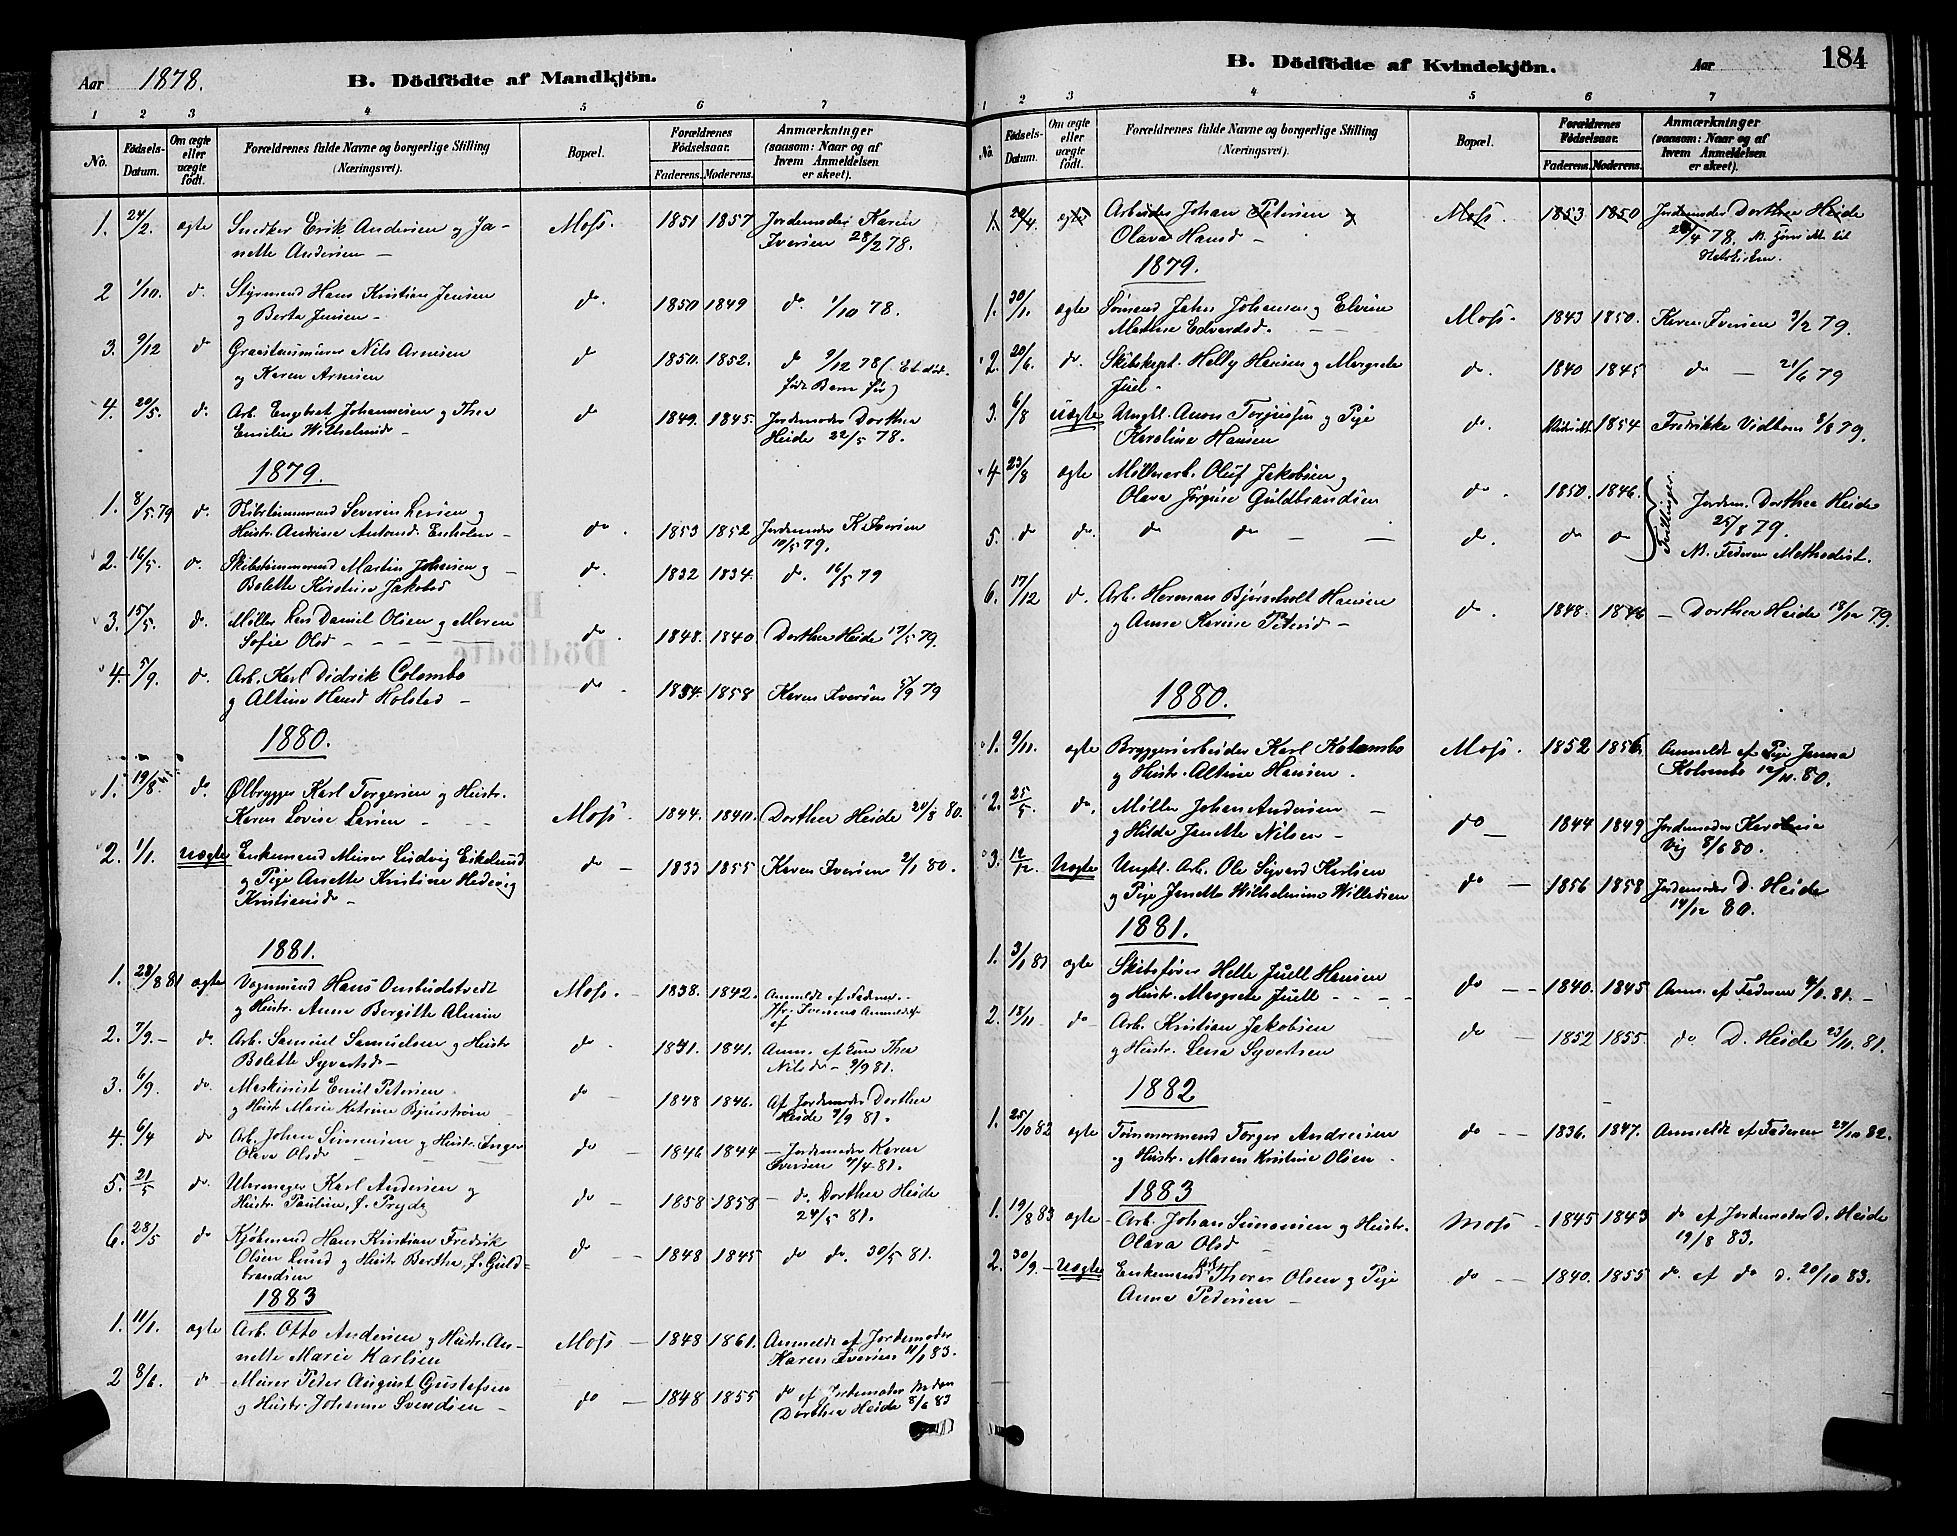 Aar 1878. B. Dödfödte af Mandkjön.
1 2 3 4 5 6 7
No. Födsels-Datum. Om ægte eller uægte födt. Forældrenes fulde Navne og borgerlige Stilling (Næringsvei). Bopæl. Forældrenes Födselsaar. Faderens. Moderens. Anmærkninger (saasom: Naar og af hvem Anmeldelsen er skeet).
1. 24/2. ægte Snedker Erik Andersen og Ja- Moss. 1851 1857 Jordemoder Karen
nette Andersen — Iversen 28/2 78.
2 1/10. do. Styrmand Hans Kristian Jensen do 1850 1849 do 1/10 78.
og Berta Jensen -
3. 9/12 do Nils Arnesen do 1850. 1852. do 9/12 78 (Et død-
og Karen Arnesen født Barn før)
4. 20/5. do. Arb. Engebret Johannesen og Thea do 1849. 1845. Jordemoder Dorthea
Emilie Wilhelmsd - Heide 22/5 78.
1879.
1. 8/5.79 do. Skibstømmermand Severin Larsen og
Hustr. Andrine Antonsd. Enholm - do. 1853 1852 Jordemoder K Iversen
10/5 79.
2. 16/5. do. Skibstømmermand Martin Johnsen og do. 1832 1834. do. 16/5 79
Bolette Kirstine Jakobsd
3. 15/5. do. Møller Daniel Olsen og Maren do. 1848. 1840 Dorthea Heide 17/5 79.
Sofie Olsd - - -
4. 5/9. do. Arb. Karl Didrik Colombo
og Altine Hansd Holstad - do. 1854. 1858 Karen Iversen 5/9 79
1880.
1. 19/8. do. Ølbrygger Karl Torgersen og Hustr.
Karen Lovise Larsen - - - Moss. 1844. 1840. Dorthea Heide 20/8 80.
2. 1/1. Uægte Enkemand Murer Ludvig Eikelund do — 1833 1855 Karen Iversen 2/1 80.
og Pige Anette Kristine Hedevig
Kristiansd -
1881.
1. 28/8 81 ægte Vognmand Hans Ombudstvedt Moss. — 1838. 1842. Anmeldt af Faderen. -
og Hustr. Anna Bergitte Almin Jfr. Iversens Anmeldelse
af
2. 7/9. - do. Arb. Samuel Samuelsen og Hustr do. — 1841. Anm. af Thea
Bolette Syvertsd - Nilsd - 9/9 81.
3. 6/9. do. Maskinist Emil Petersen do — 1848 1846. Af Jordemoder Dorthea
og Hustr Marie Katrine Bjurstrøm — Heide 9/9 81.
4. 6/4 do Arb. Johan Simensen og Hustr. Inger do — 1846 1844 — Jordemoder Karen
Olava Olsd - — Iversen 4/81.
5. 21/5 do. Uhrmager Karl Andersen og do — 1858 1858 — do. Dorthea Heide
Hustr. Pauline, f. Prydz 24/5 81.
6. 28/5 do Kjøbmand Hans Kristian Fredrik
Olsen Lund og Hustr Berthe, f. Guld- do — 1848 1845 do do. 30/5 81.
brandsen
1883
1. 11/1. ægte Arb. Otto Andersen og Hustr. An- Moss — 1848 1861. Anmeldt af Jordemoder
nette Marie Karlsen Karen Iversen 11/1 83.
2 8/6. do Murer Peder August Gustafsen
og Hustr. Johanne Svendsen - do — 1848 1855 do af Jordemoder
Dorthea Heide 8/6 83
B. Dödfödte af Kvindekjön. Aar 184
1 2 3 4 5 6 7
No. Födsels-Datum. Om ægte eller uægte födt. Forældrenes fulde Navne og borgerlige Stilling (Næringsvei). Bopæl. Forældrenes Födselsaar. Faderens. Moderens. Anmærkninger (saasom: Naar og af hvem Anmeldelsen er skeet).
1. 20/4. ægte Arbeider Johan Petersen og Moss. 1853 1850 Jordemoder Dorthea Heide
Olava Hansd - 4 78.
1879.
1. 30/1. ægte Sømand John Johansen og Elvine Moss. 1843 1850. Karen Iversen 3/2 79.
Mathea Edvardsd.
2. 20/6. do. Skibskapt. Helly Hansen og Margrete do. 1840 1845 do — 21/6 79
Juel -
3. 6/8 Uægte Ungk. Anon Torjussen og Pige do. 1854 Fredrikke Vidthom 8/8 79.
Karoline Hansen
4 23/8 ægte Møllerarb. Oluf Jakobsen og do. 1850. 1846. Tvillinger Jordem. Dorthea Heide
Olava Jørgine Guldbrandsen 25/8 79.
5. do do. do do — — do. do do N. Faderen Methodist.
6. 17/12 do. Arb. Herman Bjørnholt Hansen do. 1848. 1846 — Dorthea Heide 18/12 79.
og Anna Karine Petersd -
1880.
1. 9/11. ægte Bryggeriarbeider Karl Kolombo Moss. 1852 1856. Anmeldt af Pige Janna
og Hustr. Altine Hansen. Kolombo 12/11. 80.
2. 25/5. do. Møller Johan Andersen — do — 1844 1849 Jordemoder Karoline
og Hilda Janette Nilsen - Vig 8/6 80.
3. 12/12. Uægte Ungk. Arb. Ole Syverd Karlsen do — 1856 1858 Jordemoder D. Heide
og Pige Janette Wilhelmine Willadsen 14/12 80.
1881.
1. 3/1 81 ægte Skibsfører Helle Juell Hansen do — 1840. 1845 Anm. af Faderen 4/1. 81. -
og Hustr. Margrete Juell - - -
2. 18/11 do Arb. Kristian Jakobsen do — 1852 1855. do D. Heide 23/11. 81.
og Hustr. Lena Syvertsen
1882
1. 25/10 82 ægte Tømmermand Torger Andresen do — 1836. 1847. Anmeldt af Faderen 29/10 82.
og Hustr. Maren Kristine Olsen.
1883
1. 19/8 83 ægte Arb. Johan Simensen og Hustr. Moss — 1845 1843 do af Jordemoder D. Heide
Olava Olsd - 19/8 83.
2. 30/9. Uægte Enkemand Thores Olsen og Pige do — 1840. 1855. do af do d. 20/10 83.
Anna Pedersen -